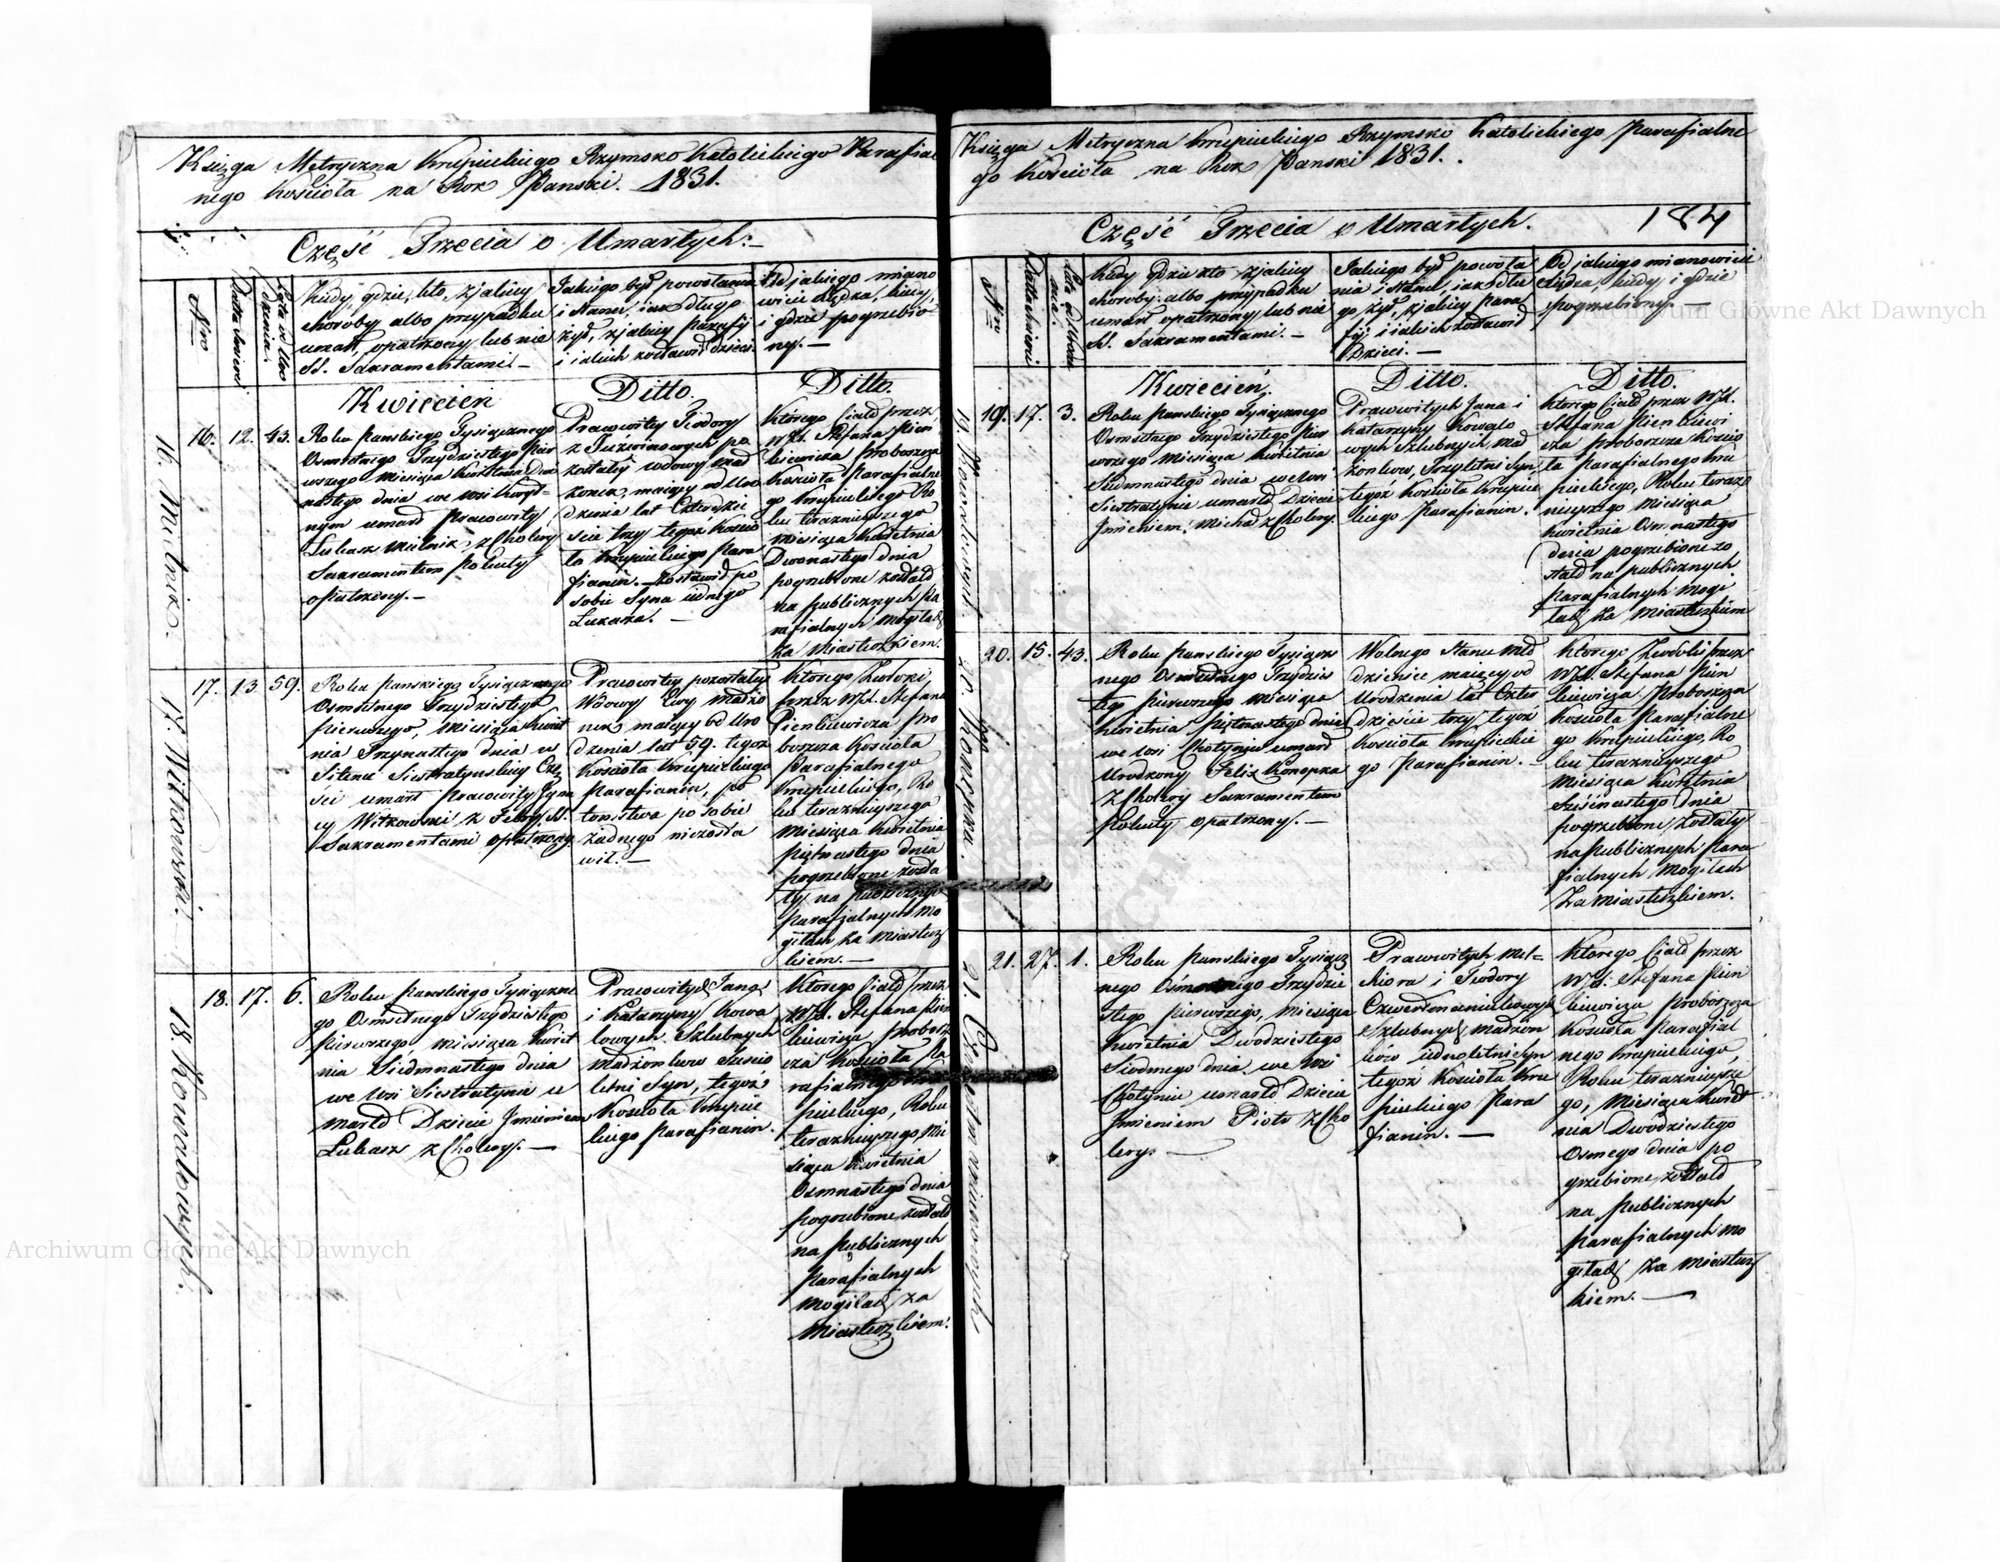 Księga Metryczna Krupieckiego Rzymsko Katolickiego Parafial
nego Kościoła na Rok Panski. 1831.
Część Trzecia o Umarłych.
Nro
Data śmierci
Lata od Uro
dzenia.
Kiedy, gdzie, kto, z jakiey
choroby albo przypadku
umarł, opatrzony lub nie
SS. Sakramentami.
Jakiego był powołania
i Stanu, iak długo
żył, z jakiey parafij
i iakich zostawił dzieci
Od jakiego miano
wicie Xiędza, kiedy,
i gdzie pogrzebio
ny.
Kwiecień
Ditto.
Ditto.
16. Mielnik.
16. 12. 43.
Roku Panskiego Tysiącznego
Osmsetnego Trzydziestego Pier
wszego Miesiąca Kwietnia Dwu
nastego dnia we wsi
umarł Pracowity
Łukasz Mielnik, z Cholery
Sakramentem Pokuty
opatrzony.
Pracowitey Teodory
z po
zostałey wdowy mał
żonek, maiący od Uro
dzenia lat Czterdzie
ście trzy tegoż Kościo
ła Krupieckiego Para
fianin. Zostawił po
sobie Syna iednego
Łukasza.
Którego Ciało przez
WJX. Stefana Pien
kiewicza Proboszcza
Kościoła Parafialne
go Krupieckiego Ro
ku terazniejszego
Miesiąca Kwietnia
Dwonastego dnia
pogrzebione zostało
na publicznych Pa
rafialnych mogiłach
za Miasteczkiem.
17. Witkowski.
17. 13 59.
Roku Panskiego Tysiącznego
Osmsetnego Trzydziestego
pierwszego, Miesiąca Kwiet
nia Trzynastego dnia w
Sielcu Siestratynskiey Czę
ści umarł Pracowity Igna
cy Witkowski z Febry, SS.
Sakramentami opatrzony
Pracowitey pozostałey
Wdowy Ewy Małżo
nek maiący od Uro
dzenia lat 59. tegoż
Kościoła Krupieckiego
Parafianin, po
tomstwa po sobie
żadnego niezosta
wił.
Którego Zwłoki
przez WJX. Stefana
Pienkiewicza Pro
boszcza Kościoła
Parafialnego
Krupieckiego, Ro
ku terazniejszego
Miesiąca Kwietnia
piętnastego dnia
pogrzebione zosta
ły na publicznych
parafialnych mo
giłach za Miastecz
kiem.
18. Kowalowych.
18. 17. 6.
Roku Panskiego Tysiączne
go Osmsetnego Trzydziestego
pierwszego miesiąca Kwiet
nia Siedmnastego dnia
we wsi Siestratynie u
marło Dziecie Jmieniem
Łukasz z Cholery.
Pracowitych Jana
i Katarzyny Kowa
lowych Szlubnych
małżonkow Sześcio
letni Syn, tegoż
Kościoła Krupiec
kiego parafianin.
Którego Ciało przez
WJX. Stefana Pien
kiewicza Probosz
cza Kościoła Pa
rafialnego Kru
pieckiego, Roku
terazniejszego Mie
siąca Kwietnia
Osmnastego dnia
pogrzebione zostało
na publicznych
parafialnych
mogiłach za
Miasteczkiem.
Księga Metryczna Krupieckiego Rzymsko Katolickiego Parafialne
go Kościoła na Rok Panski 1831.
Część Trzecia o Umarłych.
184
Nro
Data śmierci
Kiedy gdzie kto z jakiey
choroby albo przypadku
umarł opatrzony lub nie
SS. Sakramentami.
Jakiego był powoła
nia i Stanu, iak dłu
go żył, z jakiey para
fij i iakich zostawił
Dzieci.
Od jakiego mianowicie
Xiędza, kiedy i gdzie
pogrzebiony.
Kwiecień.
Ditto.
Ditto.
19. Kowalowych
19. 17. 3.
Roku Panskiego Tysiącznego
Osmsetnego Trzydziestego Pier
wszego Miesiąca Kwietnia
Siedmnastego dnia we wsi
Siestratynie umarło Dziecie
Jmieniem Michał z Cholery.
Pracowitych Jana i
Katarzyny Kowalo
wych Szlubnych mał
żonkow, Trzyletni Syn,
tegoż Kościoła Krupiec
kiego Parafianin.
Którego Ciało przez WJX.
Stefana Pienkiewi
cza Proboszcza Kościo
ła parafialnego Kru
pieckiego, Roku teraz
niejszego Miesiąca
Kwietnia Osmnastego
dnia pogrzebione zo
stało na publicznych
parafialnych mogi
łach za Miasteczkiem
20. Konopka.
20. 15. 43.
Roku Panskiego Tysiącz
nego Osmsetnego Trzydzies
tego pierwszego Miesiąca
Kwietnia piętnastego dnia
we wsi Chotyniu umarł
Urodzony Felix Konopka
z Cholery Sakramentem
Pokuty opatrzony.
Wolnego Stanu Mło
dzieniec maiący od
Urodzenia lat Czter
dzieście trzy, tegoż
Kościoła Krupieckie
go Parafianin.
Którego Zwłoki przez
WJX. Stefana Pien
kiewicza Proboszcza
Kościoła Parafialne
go Krupieckiego, Ro
ku terazniejszego
Miesiąca Kwietnia
Szesnastego dnia
pogrzebione zostały
na publicznych para
fialnych Mogiłach
Za Miasteczkiem.
21.
21. 27. 1.
Roku Panskiego Tysiącz
nego Ośmsetnego Trzydzie
stego pierwszego, miesiąca
Kwietnia Dwódziestego
Siódmego dnia, we wsi
Chotyniu umarło Dziecie
Jmieniem Piotr z Cho
lery.
Pracowitych Mel=
chiora i Teodory
Szlubnych małżon
ków iednoletni Syn
tegoż Kościoła Kru
pieckiego Para
fianin.
Którego Ciało przez
WJX. Stefana Pien
kiewicza Proboszcza
Kościoła Parafial
nego Krupieckiego,
Roku terazniejsze
go, Miesiąca Kwiet
nia Dwódziestego
Osmego dnia po
grzebione zostało
na publicznych
parafialnych mo
giłach za Miastecz
kiem.
Archiwum Główne Akt Dawnych
Archiwum Główne Akt Dawnych